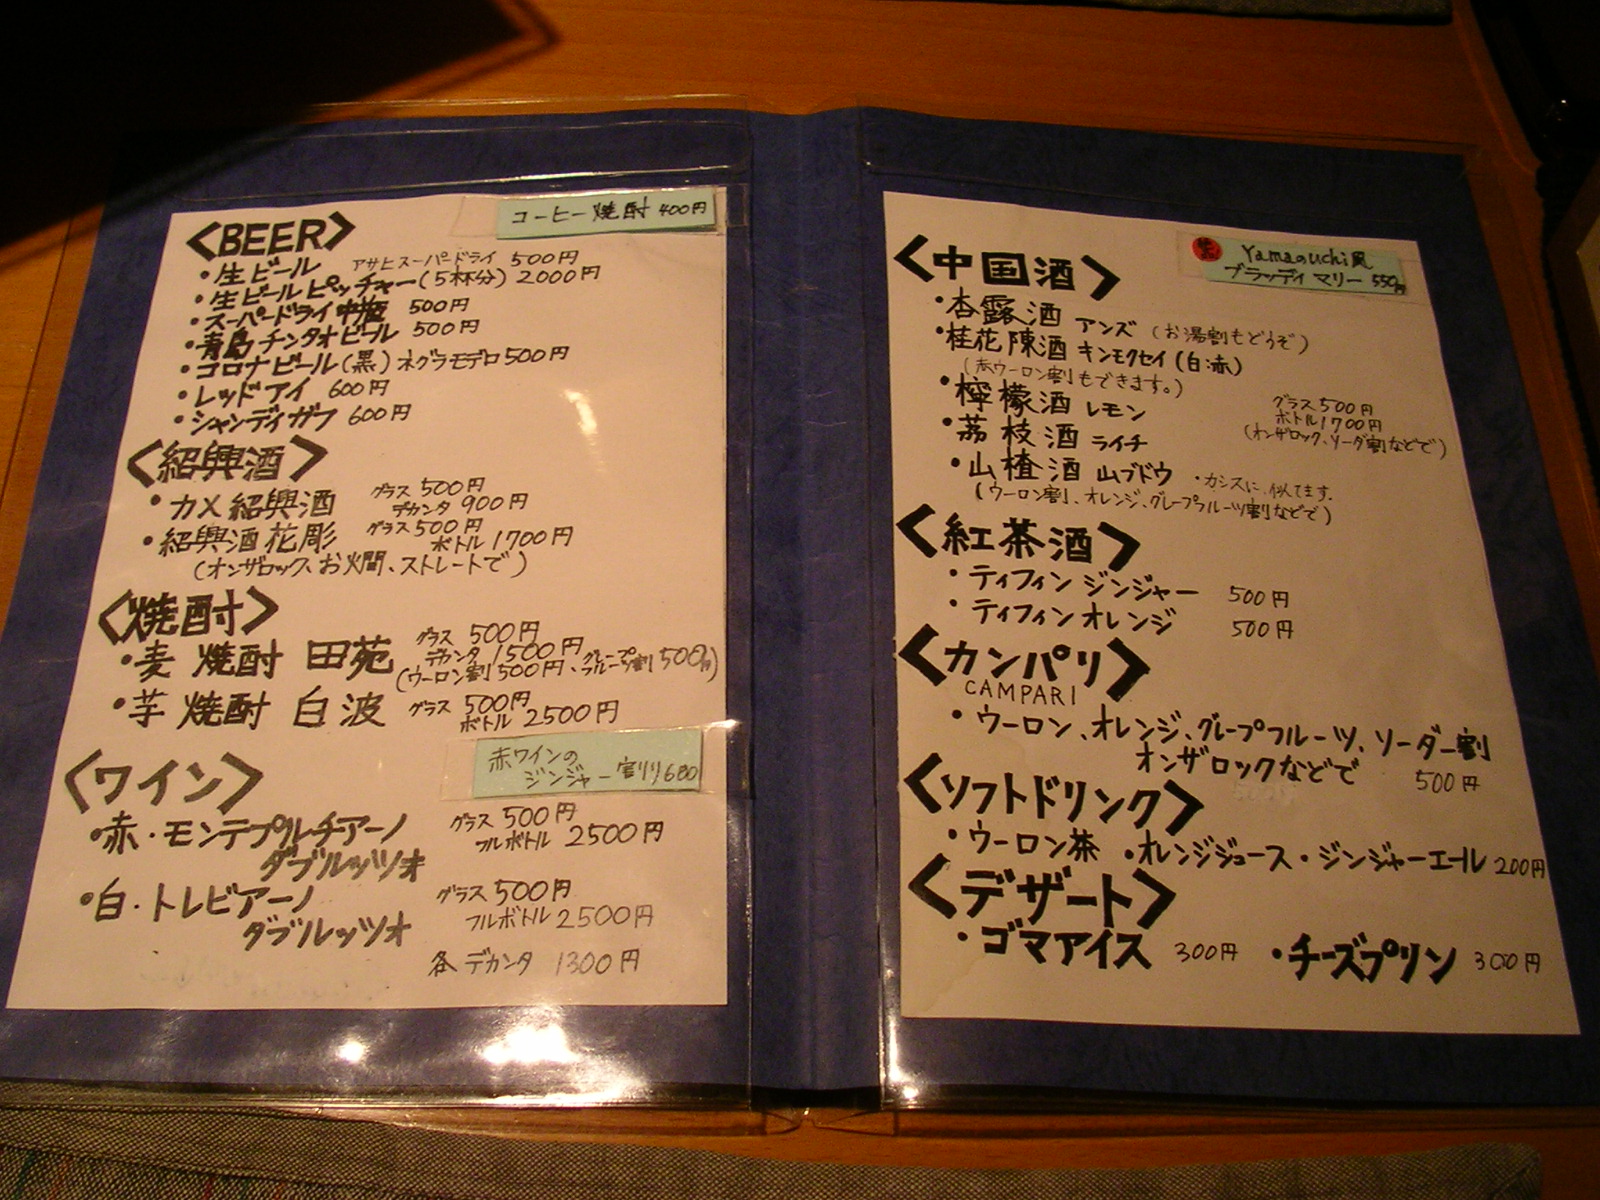 コーヒー焼酎 400円
<BEER>
・生ビール アサヒスーパードライ 500円
・生ビールピッチャー(5杯分) 2000円
・スーパードライ中瓶 500円
・青島チンタオビール 500円
・コロナビール(黒)ネグラモデロ500円
・レッドアイ 600円
・シャンディガフ 600円
<紹興酒>
・カメ紹興酒 グラス 500円
デカンタ 900円
・紹興酒花彫 グラス500円
ボトル1700円
(オンザロック、お燗、ストレートで)
<焼酎>
・麦焼酎 田苑 グラス 500円
デカンタ 1500円
(ウーロン割500円、グレープフルーツ割500円)
・芋焼酎 白波 グラス 500円
ボトル 2500円
赤ワインの
ジンジャー割り680
<ワイン>
・赤・モンテプルチアーノ グラス 500円
ダブルッツオ フルボトル 2500円
・白・トレビアーノ グラス500円
ダブルッツオ フルボトル2500円
各デカンタ 1300円
Yamaguchi風
ブラッディマリー 550円
<中国酒>
・杏露酒 アンズ (お湯割もどうぞ)
・桂花陳酒 キンモクセイ(白・赤)
(赤ウーロン割もできます。)
・檸檬酒 レモン グラス500円
ボトル1700円
・茘枝酒 ライチ (オンザロック、ソーダ割などで)
・山楂酒 山ブドウ ・カシスに似てます.
(ウーロン割、オレンジ、グレープフルーツ割などで)
<紅茶酒>
・ティフィンジンジャー 500円
・ティフィンオレンジ 500円
<カンパリ>
CAMPARI
・ウーロン、オレンジ、グレープフルーツ、ソーダー割
オンザロックなどで 500円
<ソフトドリンク>
・ウーロン茶 ・オレンジジュース・ジンジャーエール 200円
<デザート>
・ゴマアイス 300円 ・チーズプリン 300円